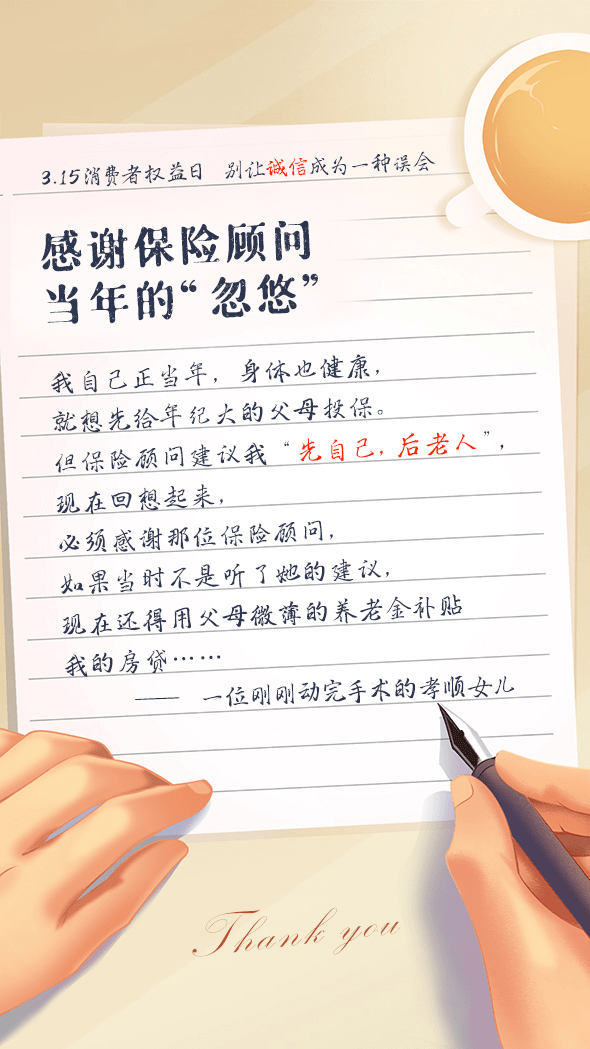 3.15消费者权益日 别让诚信成为一种误会
感谢保险顾问
当年的“忽悠”
我自己正当年，身体也健康，
就想先给年纪大的父母投保。
但保险顾问建议我“先自己，后老人”，
现在回想起来，
必须感谢那位保险顾问，
如果当时不是听了她的建议，
现在还得用父母微薄的养老金补贴
我的房贷……
—— 一位刚刚动完手术的孝顺女儿
Thank you